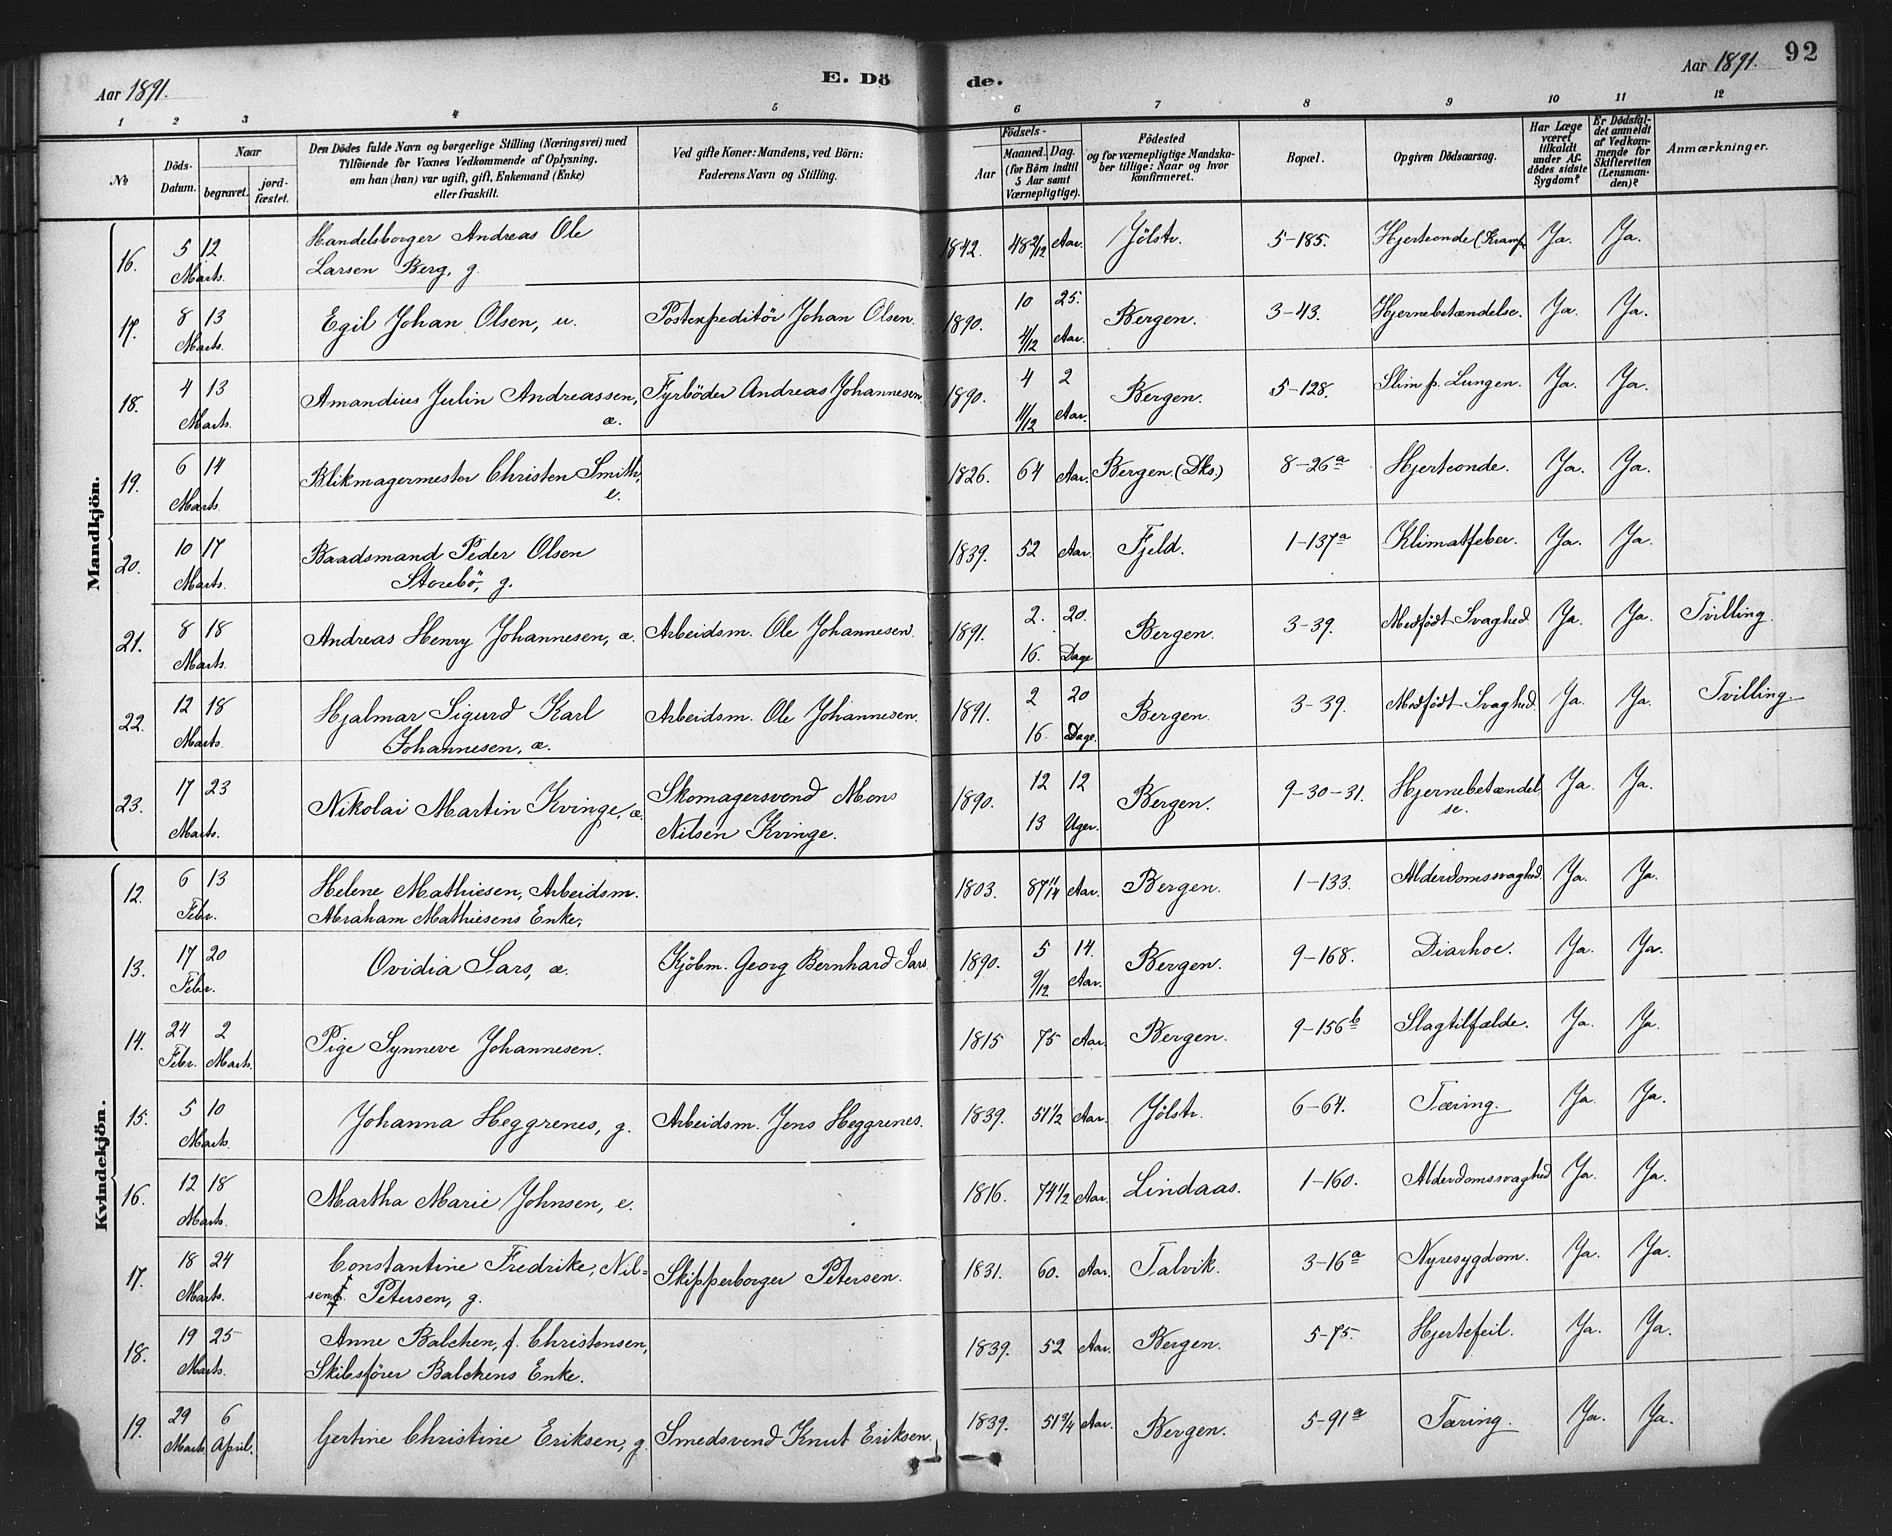 Aar 1891.
E. Dö de.
Aar 1891.
92
1 2 3 4 5 6 7 8 9 10 11 12
No
Döds-Datum.
Naar
begravet.
jord-fæstet.
Den Dödes fulde Navn og borgerlige Stilling (Næringsvei) med
Tilföiende for Voxnes Vedkommende af Oplysning,
om han (hun) var ugift, gift, Enkemand (Enke)
eller fraskilt.
Ved gifte Koner: Mandens, ved Börn:
Faderens Navn og Stilling.
Födsels-
Aar
Maaned. Dag
(for Börn indtil
5 Aar samt
Værnepligtige).
Födested
og for værnepligtige Mandska-
ber tillige: Naar og hvor
konfirmeret.
Bopæl.
Opgiven Dödsaarsag.
Har Læge
været
tilkaldt
under Af-
dödes sidste
Sygdom?
Er Dödsfal-
det anmeldt
af Vedkom-
mende for
Skifteretten
(Lensman-
den)?
Anmærkninger.
Mandkjön.
16. 5 12 Marts. Handelsborger Andreas Ole
Larsen Berg, g. 1842. 48 2/12 Aar. Jölstr. 5-185. Hjerteonde (Krampe Ja. Ja.
17. 8 13 Marts. Egil Johan Olsen, u. Postexpeditör Johan Olsen. 1890. 10 25. 4/12 Aar. Bergen. 3-43. Hjernebetændelse. Ja. Ja.
18. 4 13 Marts. Amandius Julin Andreassen, æ. Fyrböder Andreas Johannesen. 1890. 4 2 11/12 Aar. Bergen. 5-128. Slim p. Lungen. Ja. Ja.
19. 6 14 Marts. Blikmagermester Christen Smith, e. 1826. 64 Aar. Bergen. (Dks.) 8-26a Hjerteonde. Ja. Ja.
20. 10 17 Marts. Baadsmand Peder Olsen
Storebö, g. 1839. 52 Aar. Fjeld. 1-137a Klimatfeber. Ja. Ja.
21. 8 18 Marts. Andreas Henry Johannesen, æ. Arbeidsm. Ole Johannesen. 1891. 2. 20. 16. Dage Bergen. 3-39. Medfödt Svaghed. Ja. Ja. Tvilling.
22. 12 18 Marts. Hjalmar Sigurd Karl
Johannesen, æ. Arbeidsm. Ole Johannesen. 1891. 2 20 16. Dage. Bergen. 3-39. Medfödt Svaghed. Ja. Ja. Tvilling.
23. 17 23 Marts. Nikolai Martin Kvinge, æ. Skomagersvend Mons
Nilsen Kvinge. 1890. 12 12 13 Uger. Bergen. 9-30-31. Hjernebetændel
se. Ja. Ja.
Kvindekjön.
12. 6 13 Febr. Helene Mathiesen, Arbeidsm.
Abraham Mathiesens Enke, 1803. 87 11/14 Aar. Bergen. 1-133. Alderdomssvaghed Ja. Ja.
13. 17 20 Febr. Ovidia Sars, æ. Kjöbm. Georg Bernhard Sars 1890. 5 14. 9/12 Aar. Bergen. 9-168. Diarhoe. Ja. Ja.
14. 24 Febr. 2 Marts. Pige Synneve Johannesen. 1815 75 Aar. Bergen. 9-156b Slagtilfælde. Ja. Ja.
15. 5 10 Marts Johanna Heggrenes, g. Arbeidsm. Jens Heggrenes. 1839. 51 1/2 Aar. Jölstr. 6-64. Tæring. Ja. Ja.
16. 12 18 Marts. Martha Marie Johnsen, e. 1816. 74 1/2 Aar. Lindaas. 1-160. Alderdomssvaghed Ja. Ja.
17. 18 24 Marts. Constantine Fredrike, Nil-
sen f. Petersen, g. Skipperborger Petersen. 1831. 60. Aar. Talvik. 3-16a Nyresygdom. Ja. Ja.
18. 19 25 Marts. Anne Balchen, f. Christensen,
Skibsförer Balchens Enke. 1839. 52 Aar. Bergen. 5-75. Hjertefeil. Ja. Ja.
19. 29 Marts. 6 April. Gertine Christine Eriksen, g. Smedsvend Knut Eriksen. 1839. 51 3/4 Aar. Bergen. 5-91a Tæring. Ja. Ja.